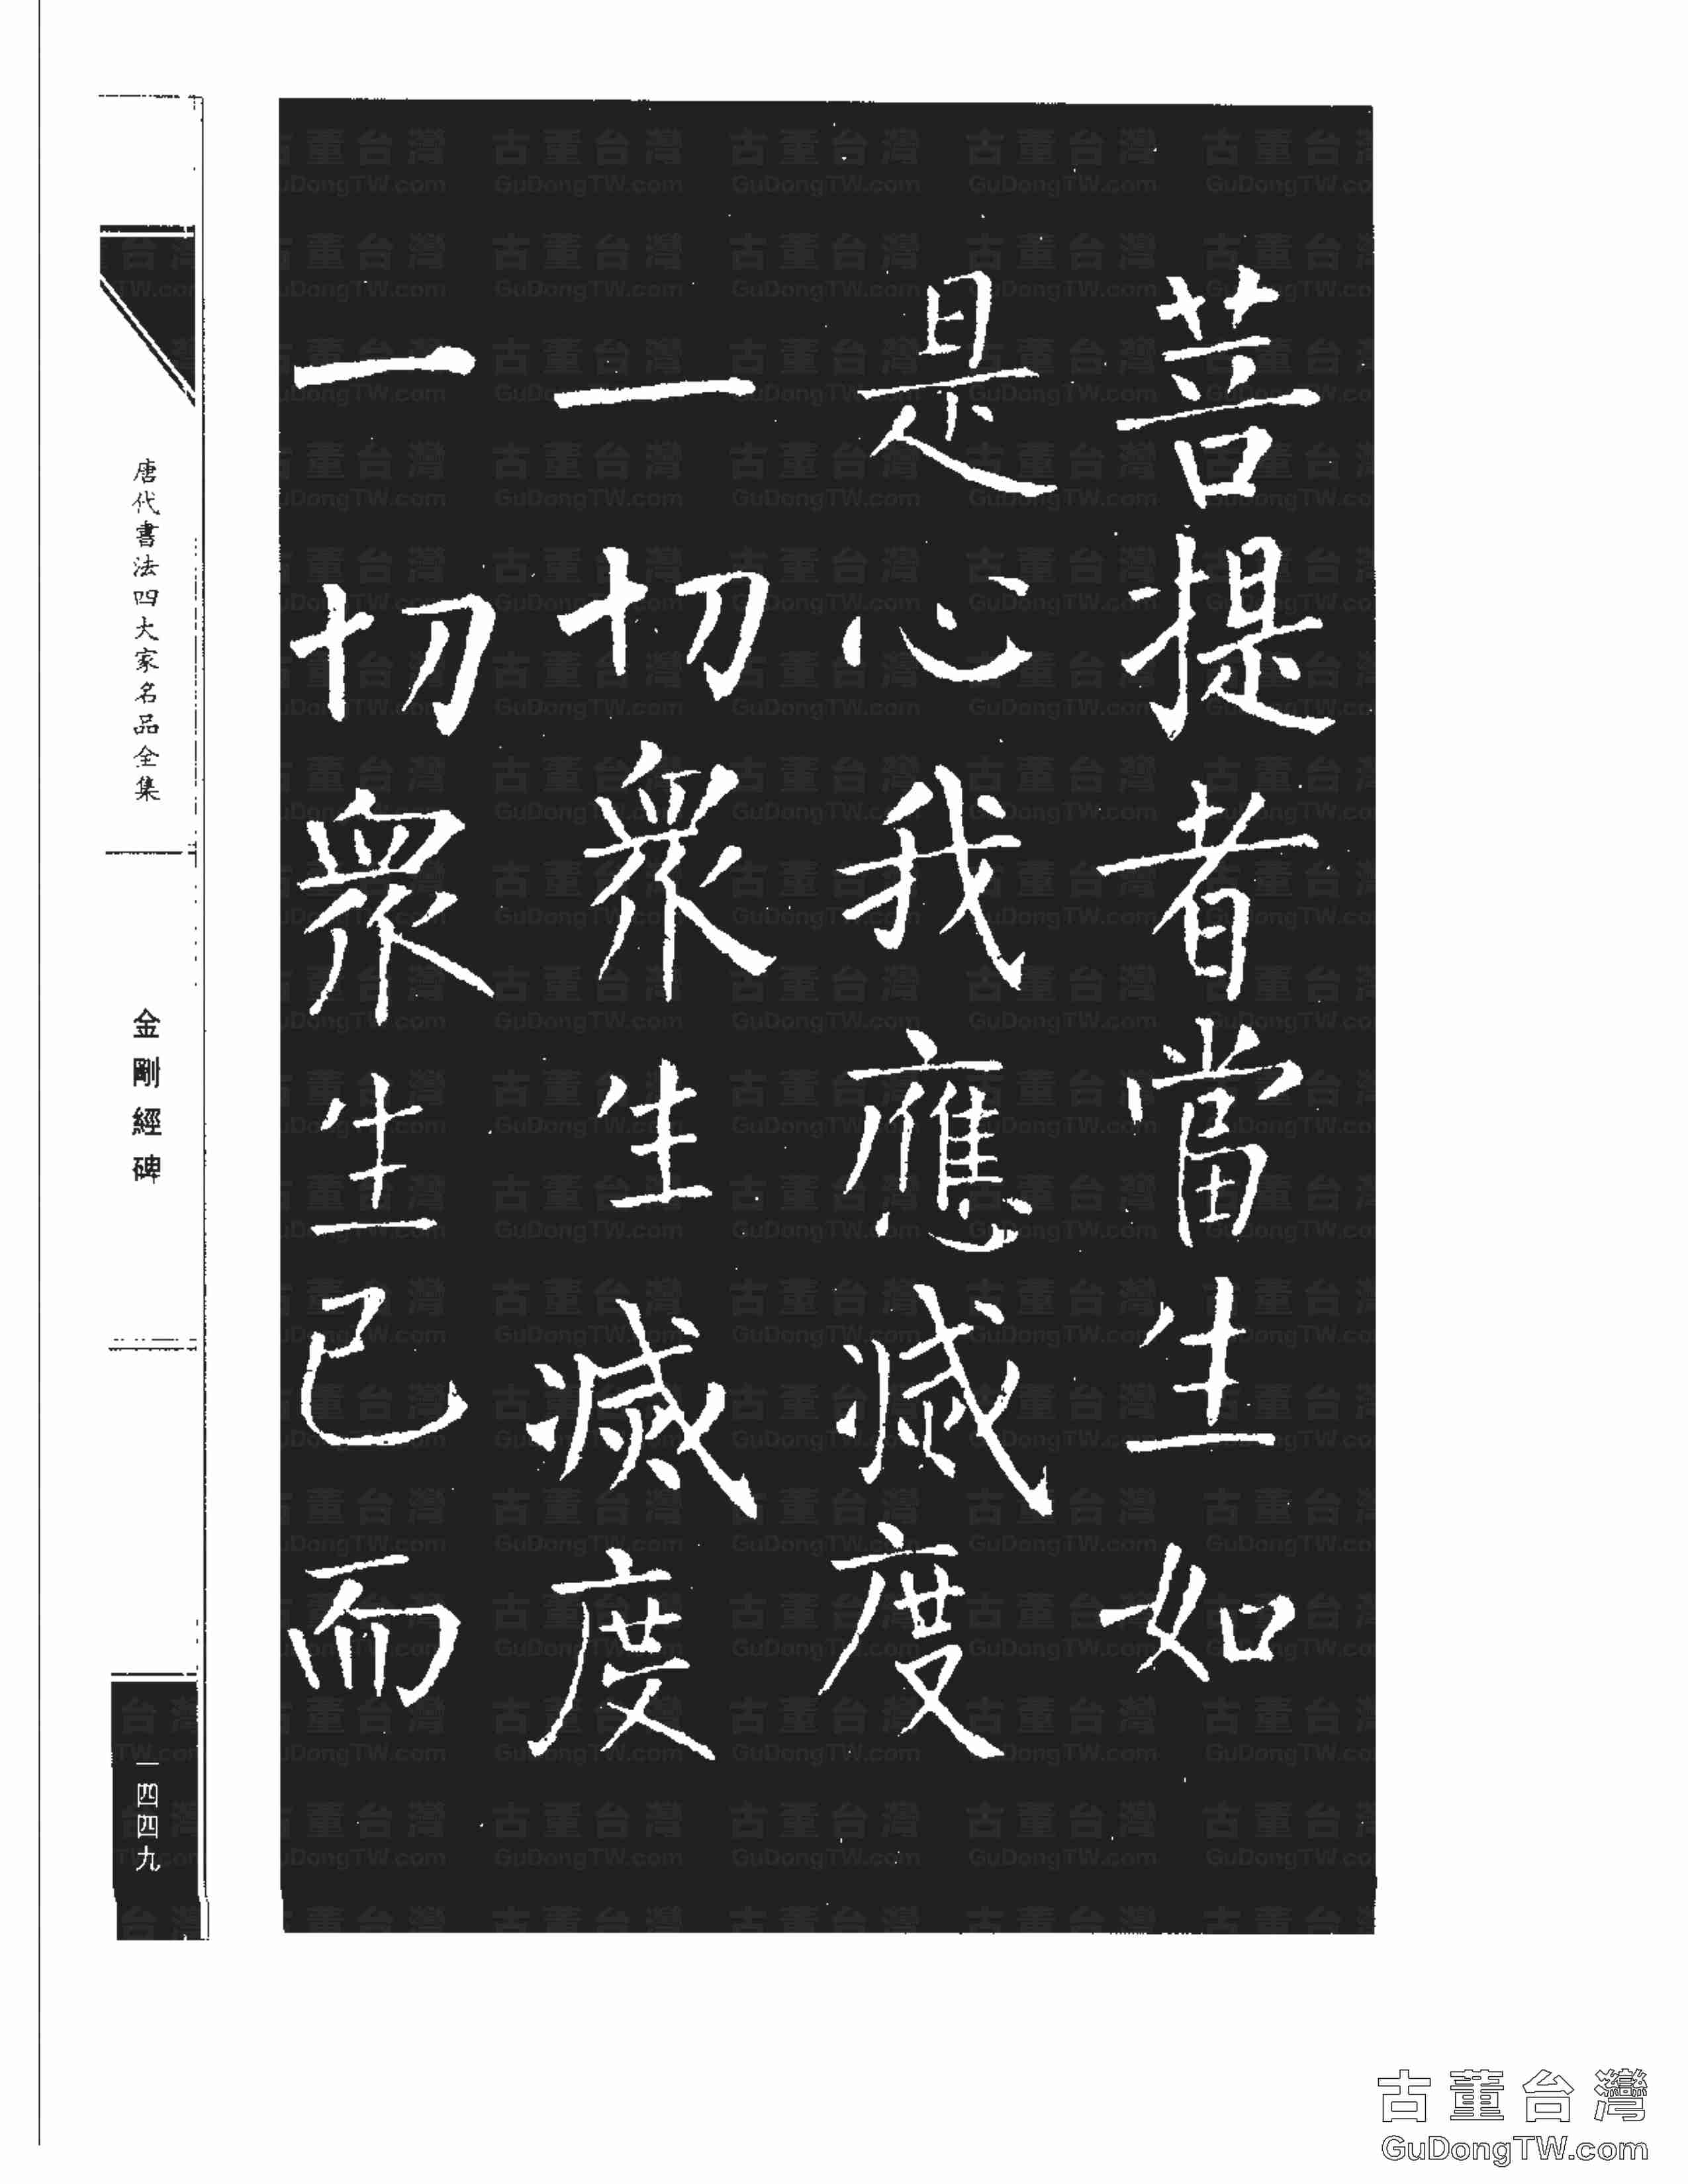 菩提者當生如
是心我應滅度
一切衆生滅度
一切衆生已而
唐代書法四大家名品全集
金剛經碑
一四四九
古董台灣
GuDongTW.com